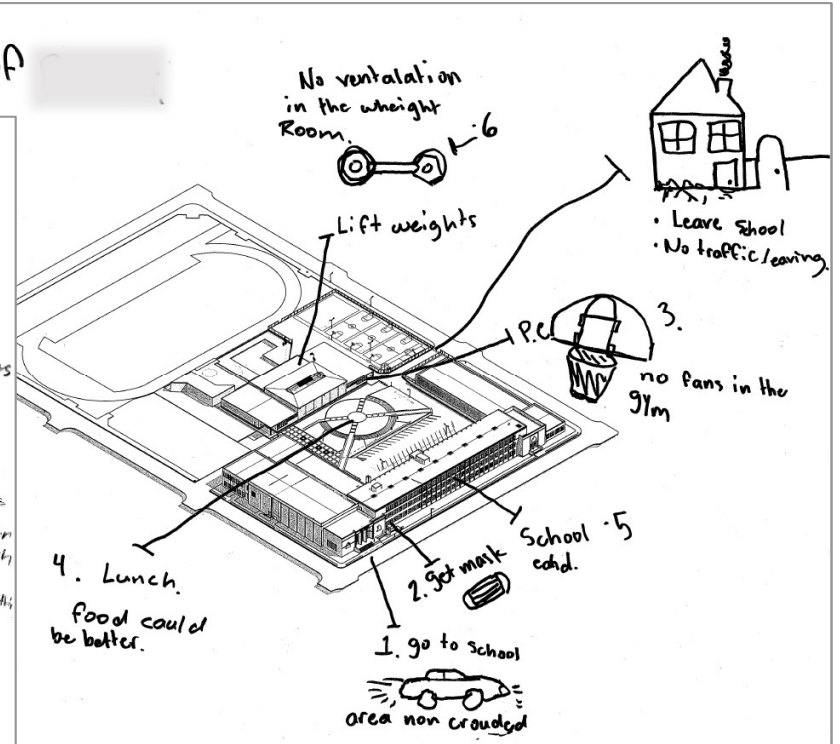 No ventalation
in the wheight
Room.
6
Lift weights
• Leave School
• No traffic leaving.
P.E.
3.
no fans in the
gym
School 5
4. Lunch.
food could
be better.
2. get mask
1. go to school
area non crouded